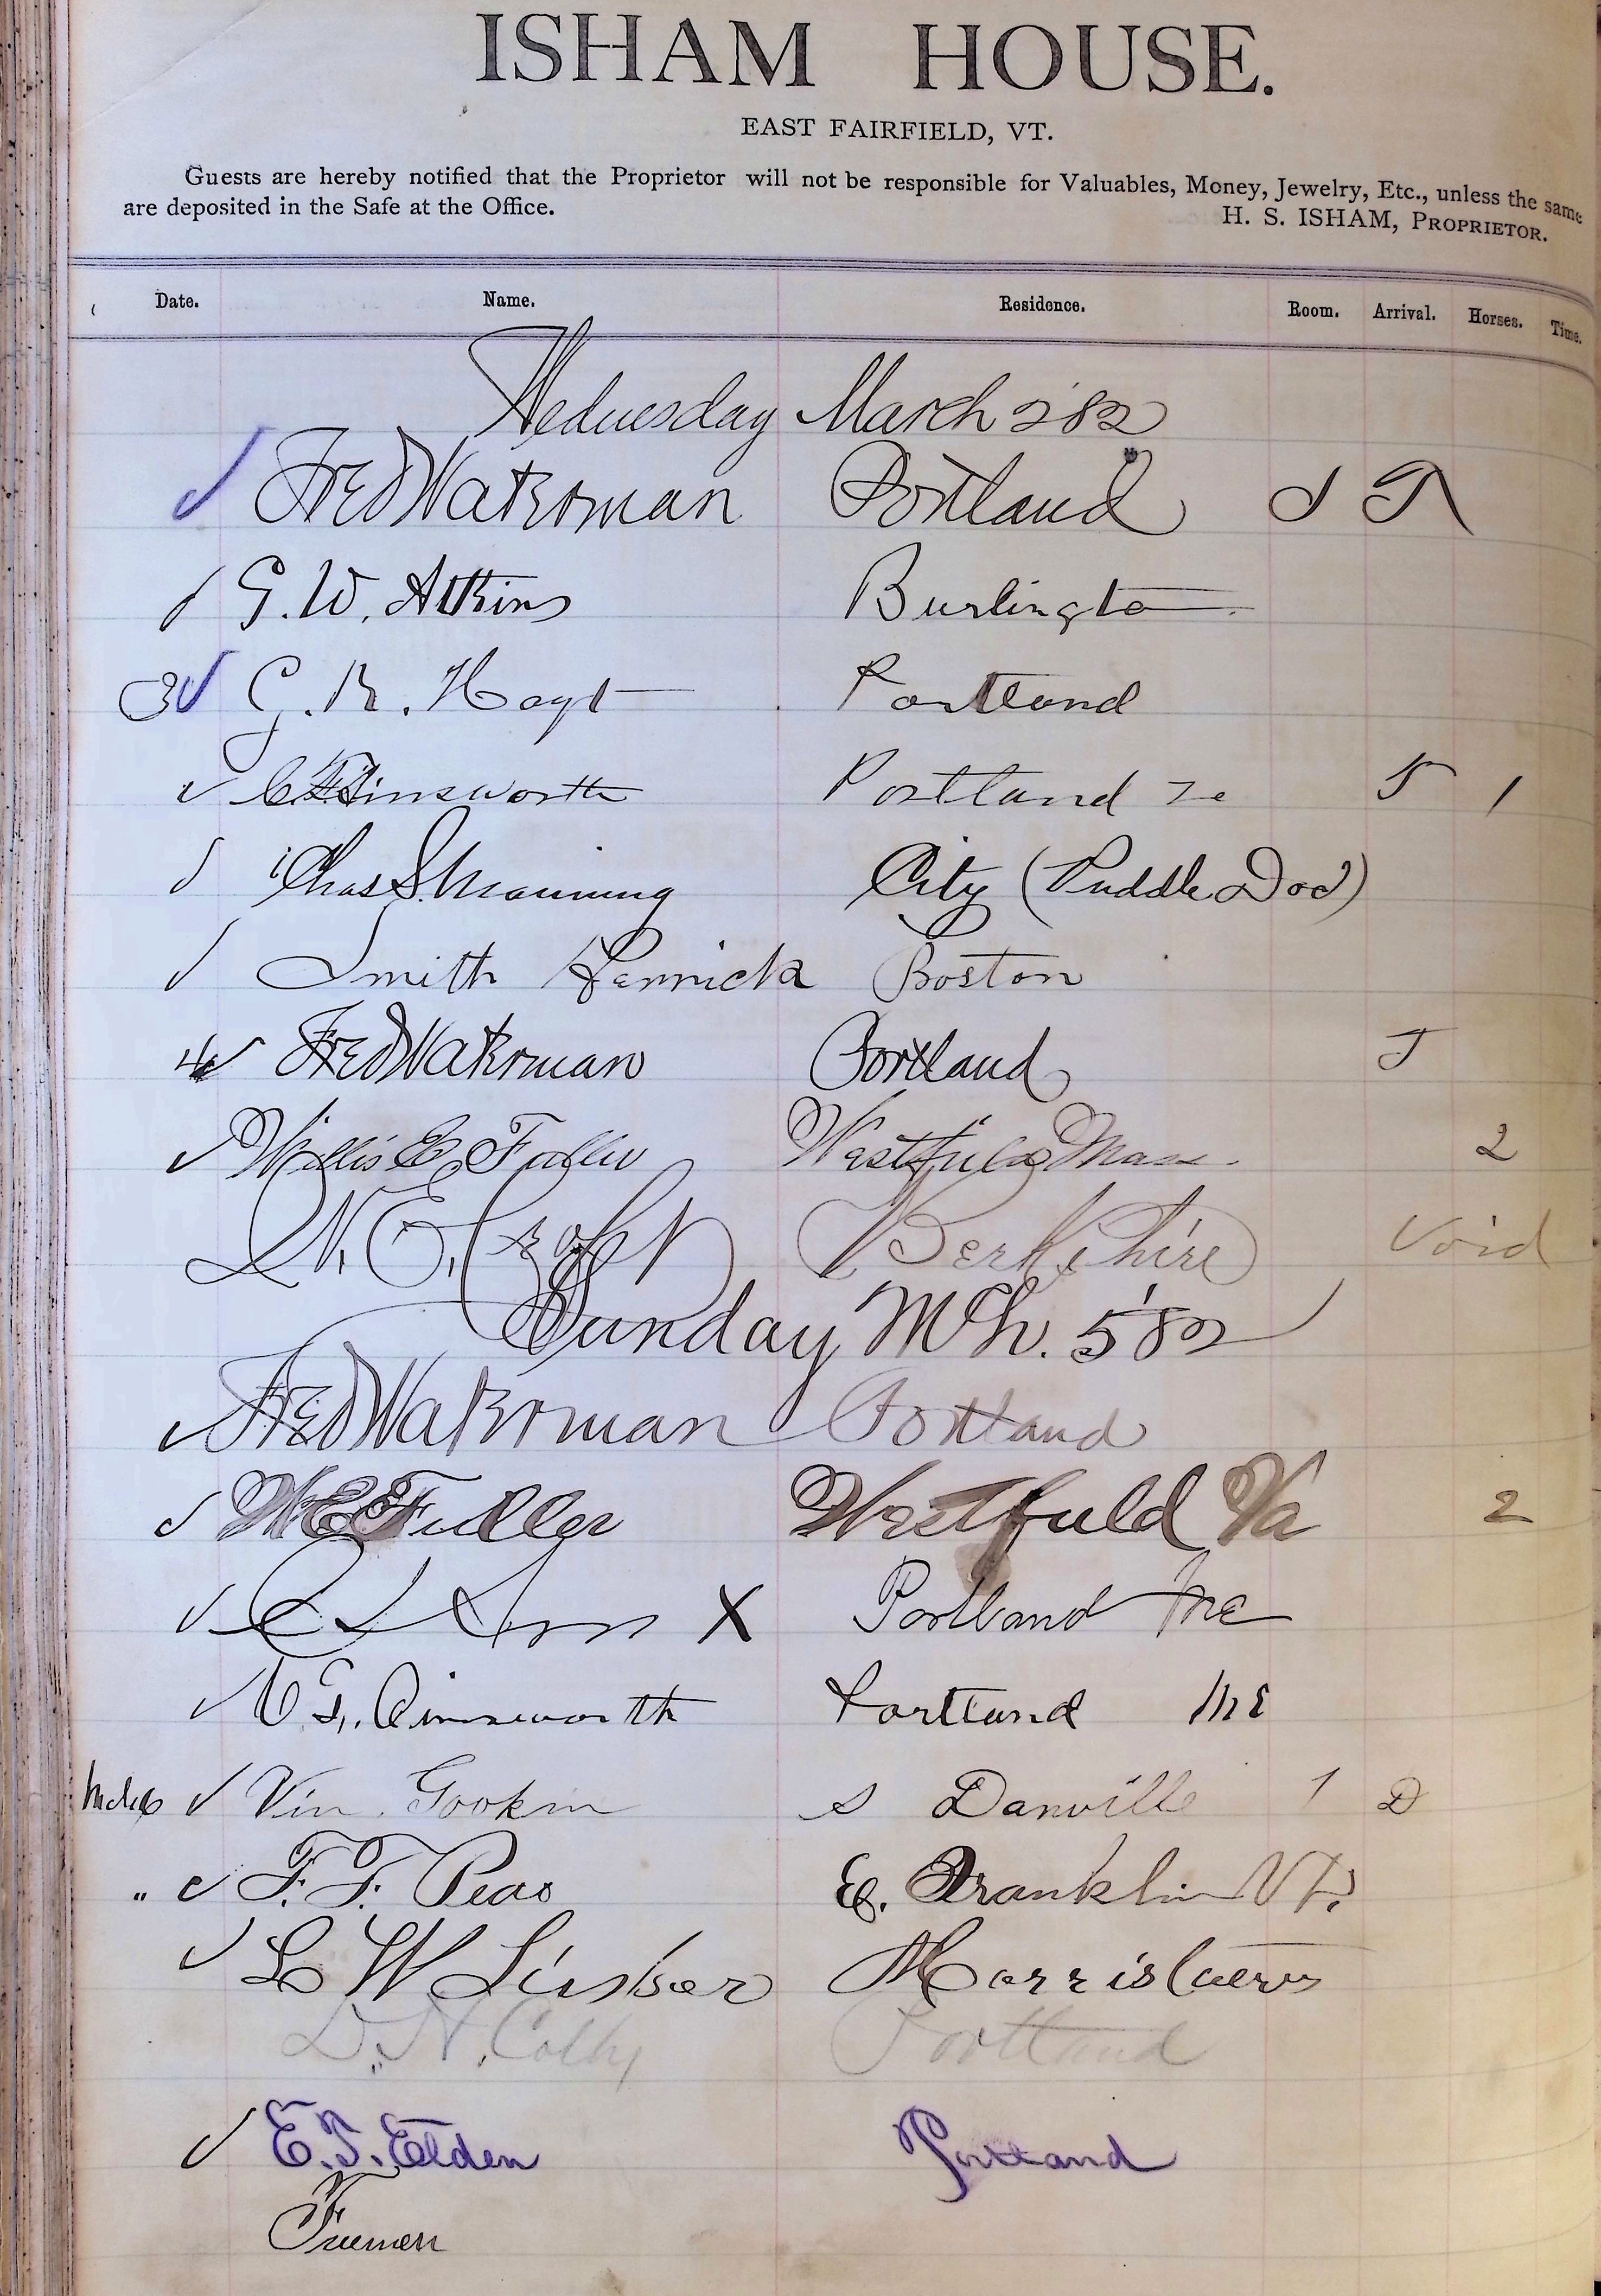 ISHAM HOUSE.
EAST FAIRFIELD, VT.
Guests are hereby notified that the Proprietor will not be responsible for Valuables, Money, Jewelry, Etc., unless the same
are deposited in the Safe at the Office.
H. S. ISHAM, PROPRIETOR.
Date. Name. Residence. Room. Arrival. Horses. Time.
Wednesday March 2 '82
Fred Waterman Portland
G. W. Atkins Burlington
3 G. R. Hoyt Portland
C F Ainsworth Portland 1
Chas S. Manning City (Puddle Doc)
Smith Boston
4 Fred Waterman Portland
Willis E. Fuller Westfield Mass. 2
N. E. Croft Berkshire Void
Sunday Mch. 5 '82
Fred Waterman Portland
W E Fuller Westfield Va 2
X Portland Me
C. F. Ainsworth Portland Me
Mch 6 Vin Gookin S Danville 1 D
" F. F. Peas E. Franklin Vt.
L W Morristown
D. N. Colby Portland
E. T. Elden Portland